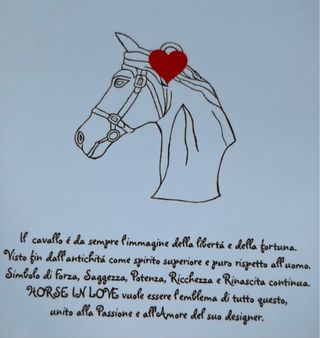 Il cavallo é da sempre l'immagine della libertá e della fortuna.
Visto fin dall'antichitá come spirito superiore e puro rispetto all'uomo.
Simbolo di Forza, Saggezza, Potenza, Ricchezza e Rinascita continua.
HORSE IN LOVE vuole essere l'emblema di tutto questo,
unito alla Passione e all'Amore del suo designer.